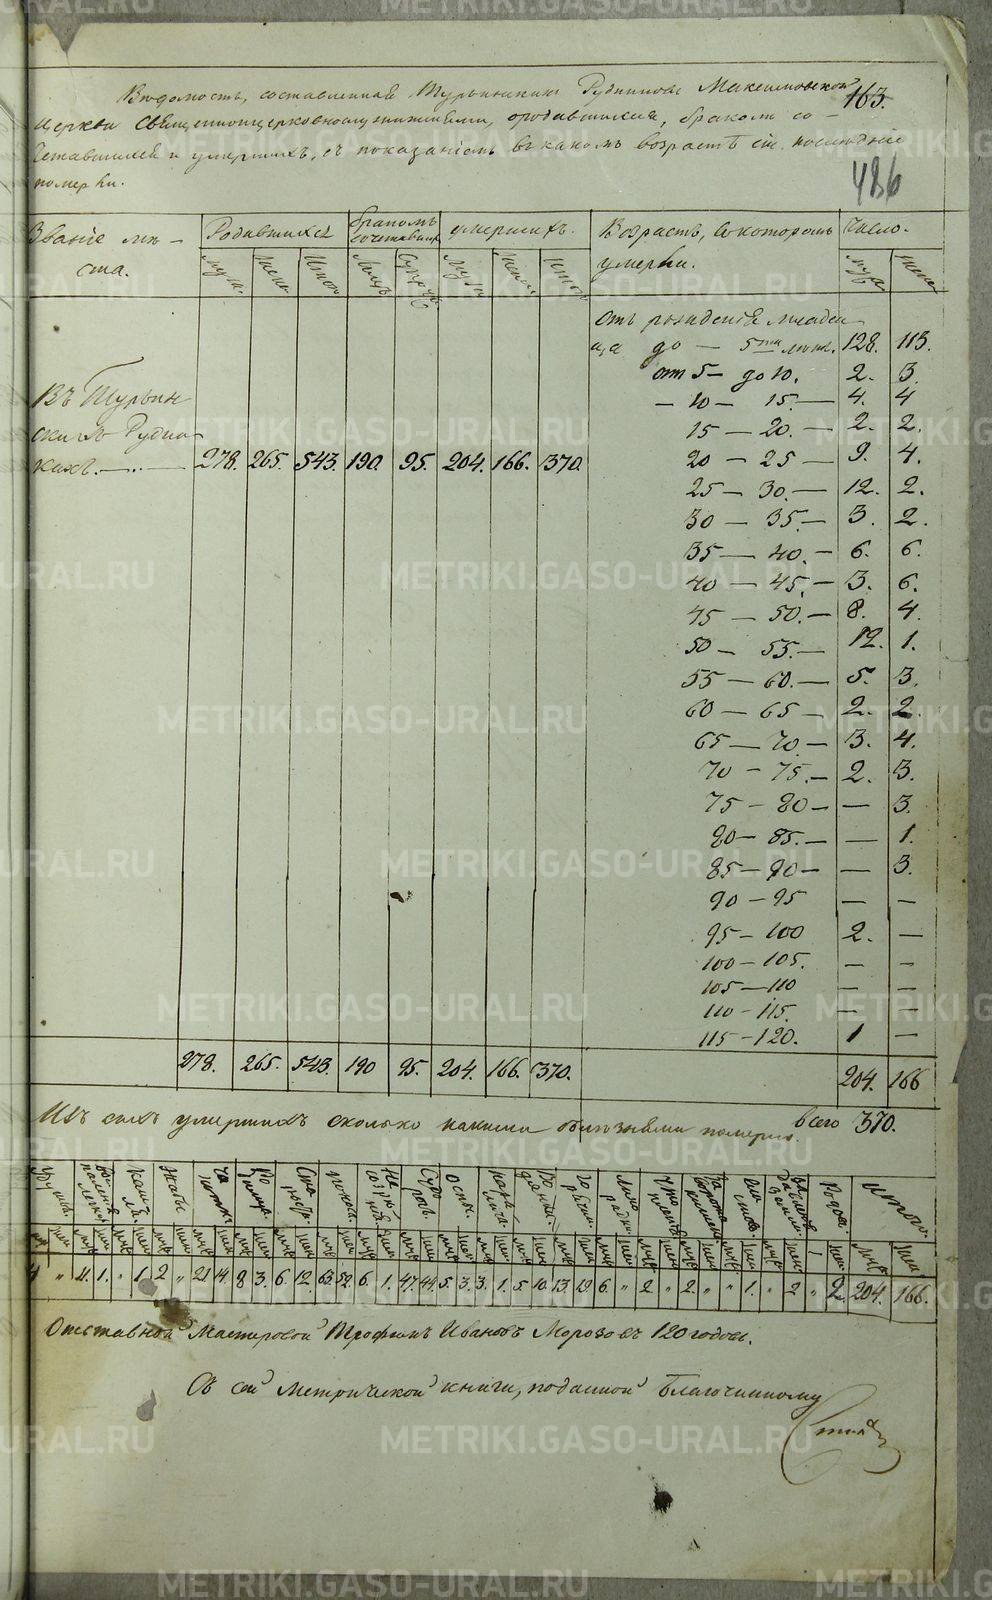 Ведомость, составленная Турьинских Рудников Максимовской
163.
церкви священноцерковнослужителями, о родившихся, браком со-
четавшихся и умерших, съ показаніемъ въ какомъ возрастѣ сіи последніе
померли.
486
Званіе мѣ- Родившихся браномъ сочетавших умершихъ. Возрастъ, въ которомъ Число.
ста. муж. жен. Итого Лицъ Супруж. муж. жен. Итог. умерли. муж. жен.
Отъ рожденія младен
ца до — 5ти лѣтъ. 128. 113.
от 5 — до 10. 2. 3.
Въ Турьин — 10 — 15. — 4. 4
скихъ Рудни- 15 — 20. — 2. 2.
кахъ. 278. 265. 543. 190. 95. 204. 166. 370. 20 — 25 — 9. 4.
25 — 30. — 12. 2.
30 — 35. — 3. 2.
35 — 40. — 6. 6.
40 — 45. — 3. 6.
45 — 50. — 8. 4.
50 — 55. — 12. 1.
55 — 60. — 5. 3.
60 — 65 — 2. 2.
65 — 70. — 3. 4.
70 — 75. — 2. 3.
75 — 80 — — 3.
80 — 85. — — 1.
85 — 90 — — 3.
90 — 95 — —
95 — 100 2. —
100 — 105. — —
105 — 110 — —
110 — 115. — —
115 — 120. 1 —
278. 265. 543. 190 95. 204. 166. 370. 204. 166
Изъ сихъ умершихъ сколько какими болѣзнями померло. всего 370.
Жабы Чахотки Родимца Старости Поноса Оспы Родовъ Итого.
4 " 11. 1. " 1 2 " 21 14. 8 3. 6. 12. 63. 52. 6. 1. 47. 44. 5. 3. 3. 1. 5 10. 13. 19. 6. " 2 " 2. " " 1. " 2 " 2. 204. 166.
Отставной Мастеровой Трофимъ Ивановъ Морозовъ 120 годовъ.
Съ сей метрической книги, поданной Благочинному
METRIKI.GASO-URAL.RU